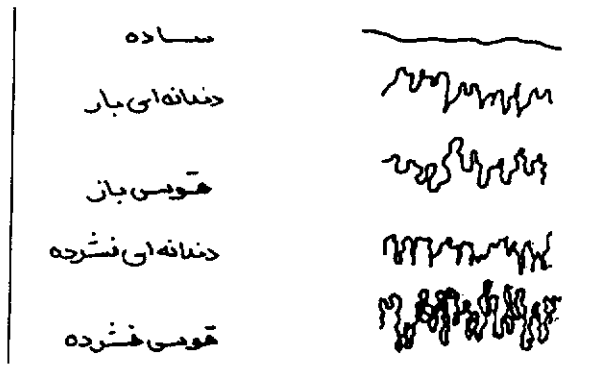 ساده
دندانه‌ای باز
قوسی باز
دندانه‌ای فشرده
قوسی فشرده